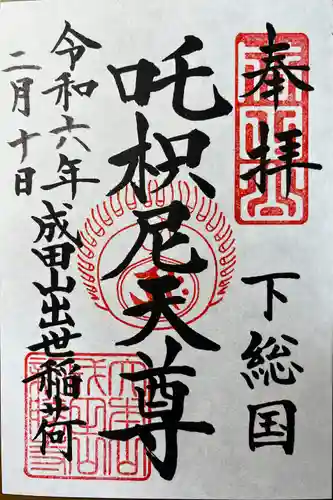 奉拝
下総国
吒枳尼天尊
令和六年
二月十日
成田山出世稲荷